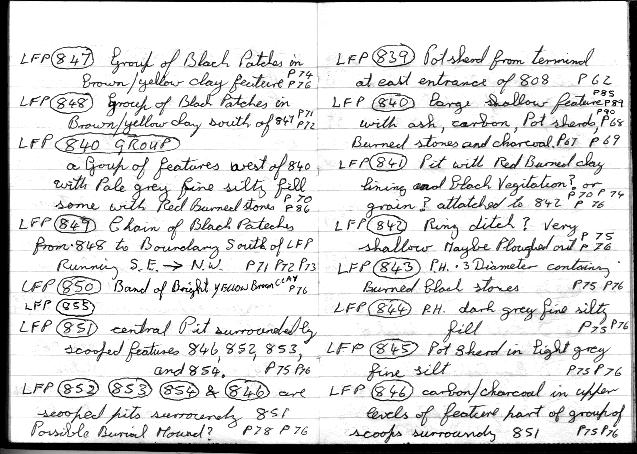 LFP 847 Group of Black Patches in
Brown/yellow clay feature P74 P76
LFP 848 Group of Black Patches in
Brown/yellow clay south of 847 P71 P72
LFP 840 GROUP
a Group of features west of 840
with Pale grey fine silty fill
some with Red Burned stones P70 P86
LFP 849 Chain of Black Patches
from 848 to Boundary South of LFP
Running S.E. → N.W. P71 P72 P73
LFP 850 Band of Bright YELLOW Brown CLAY P76
LFP 855
LFP 851 central Pit surrounded by
scooped features 846, 852, 853,
and 854. P75 P76
LFP 852 853 854 & 846 are
scooped pits surrounding 851
Possible Burial Mound? P78 P76
LFP 839 Pot sherd from terminal
at east entrance of 808 P62
LFP 840 large shallow feature P85 P89
with ash, carbon, Pot sherds, P80 P68
Burned stones and charcoal P67 P69
LFP 841 Pit with Red Burned clay
lining and black Vegitation? or
grain? attatched to 842 P70 P74 P76
LFP 842 Ring ditch? Very
shallow Maybe Ploughed out P75 P76
LFP 843 P.H. .3 Diameter containing
Burned black stones P75 P76
LFP 844 P.H. dark grey fine silty
fill P75 P76
LFP 845 Pot sherd in light grey
fine silt P75 P76
LFP 846 carbon/charcoal in upper
levels of feature part of group of
scoops surrounding 851 P75 P76